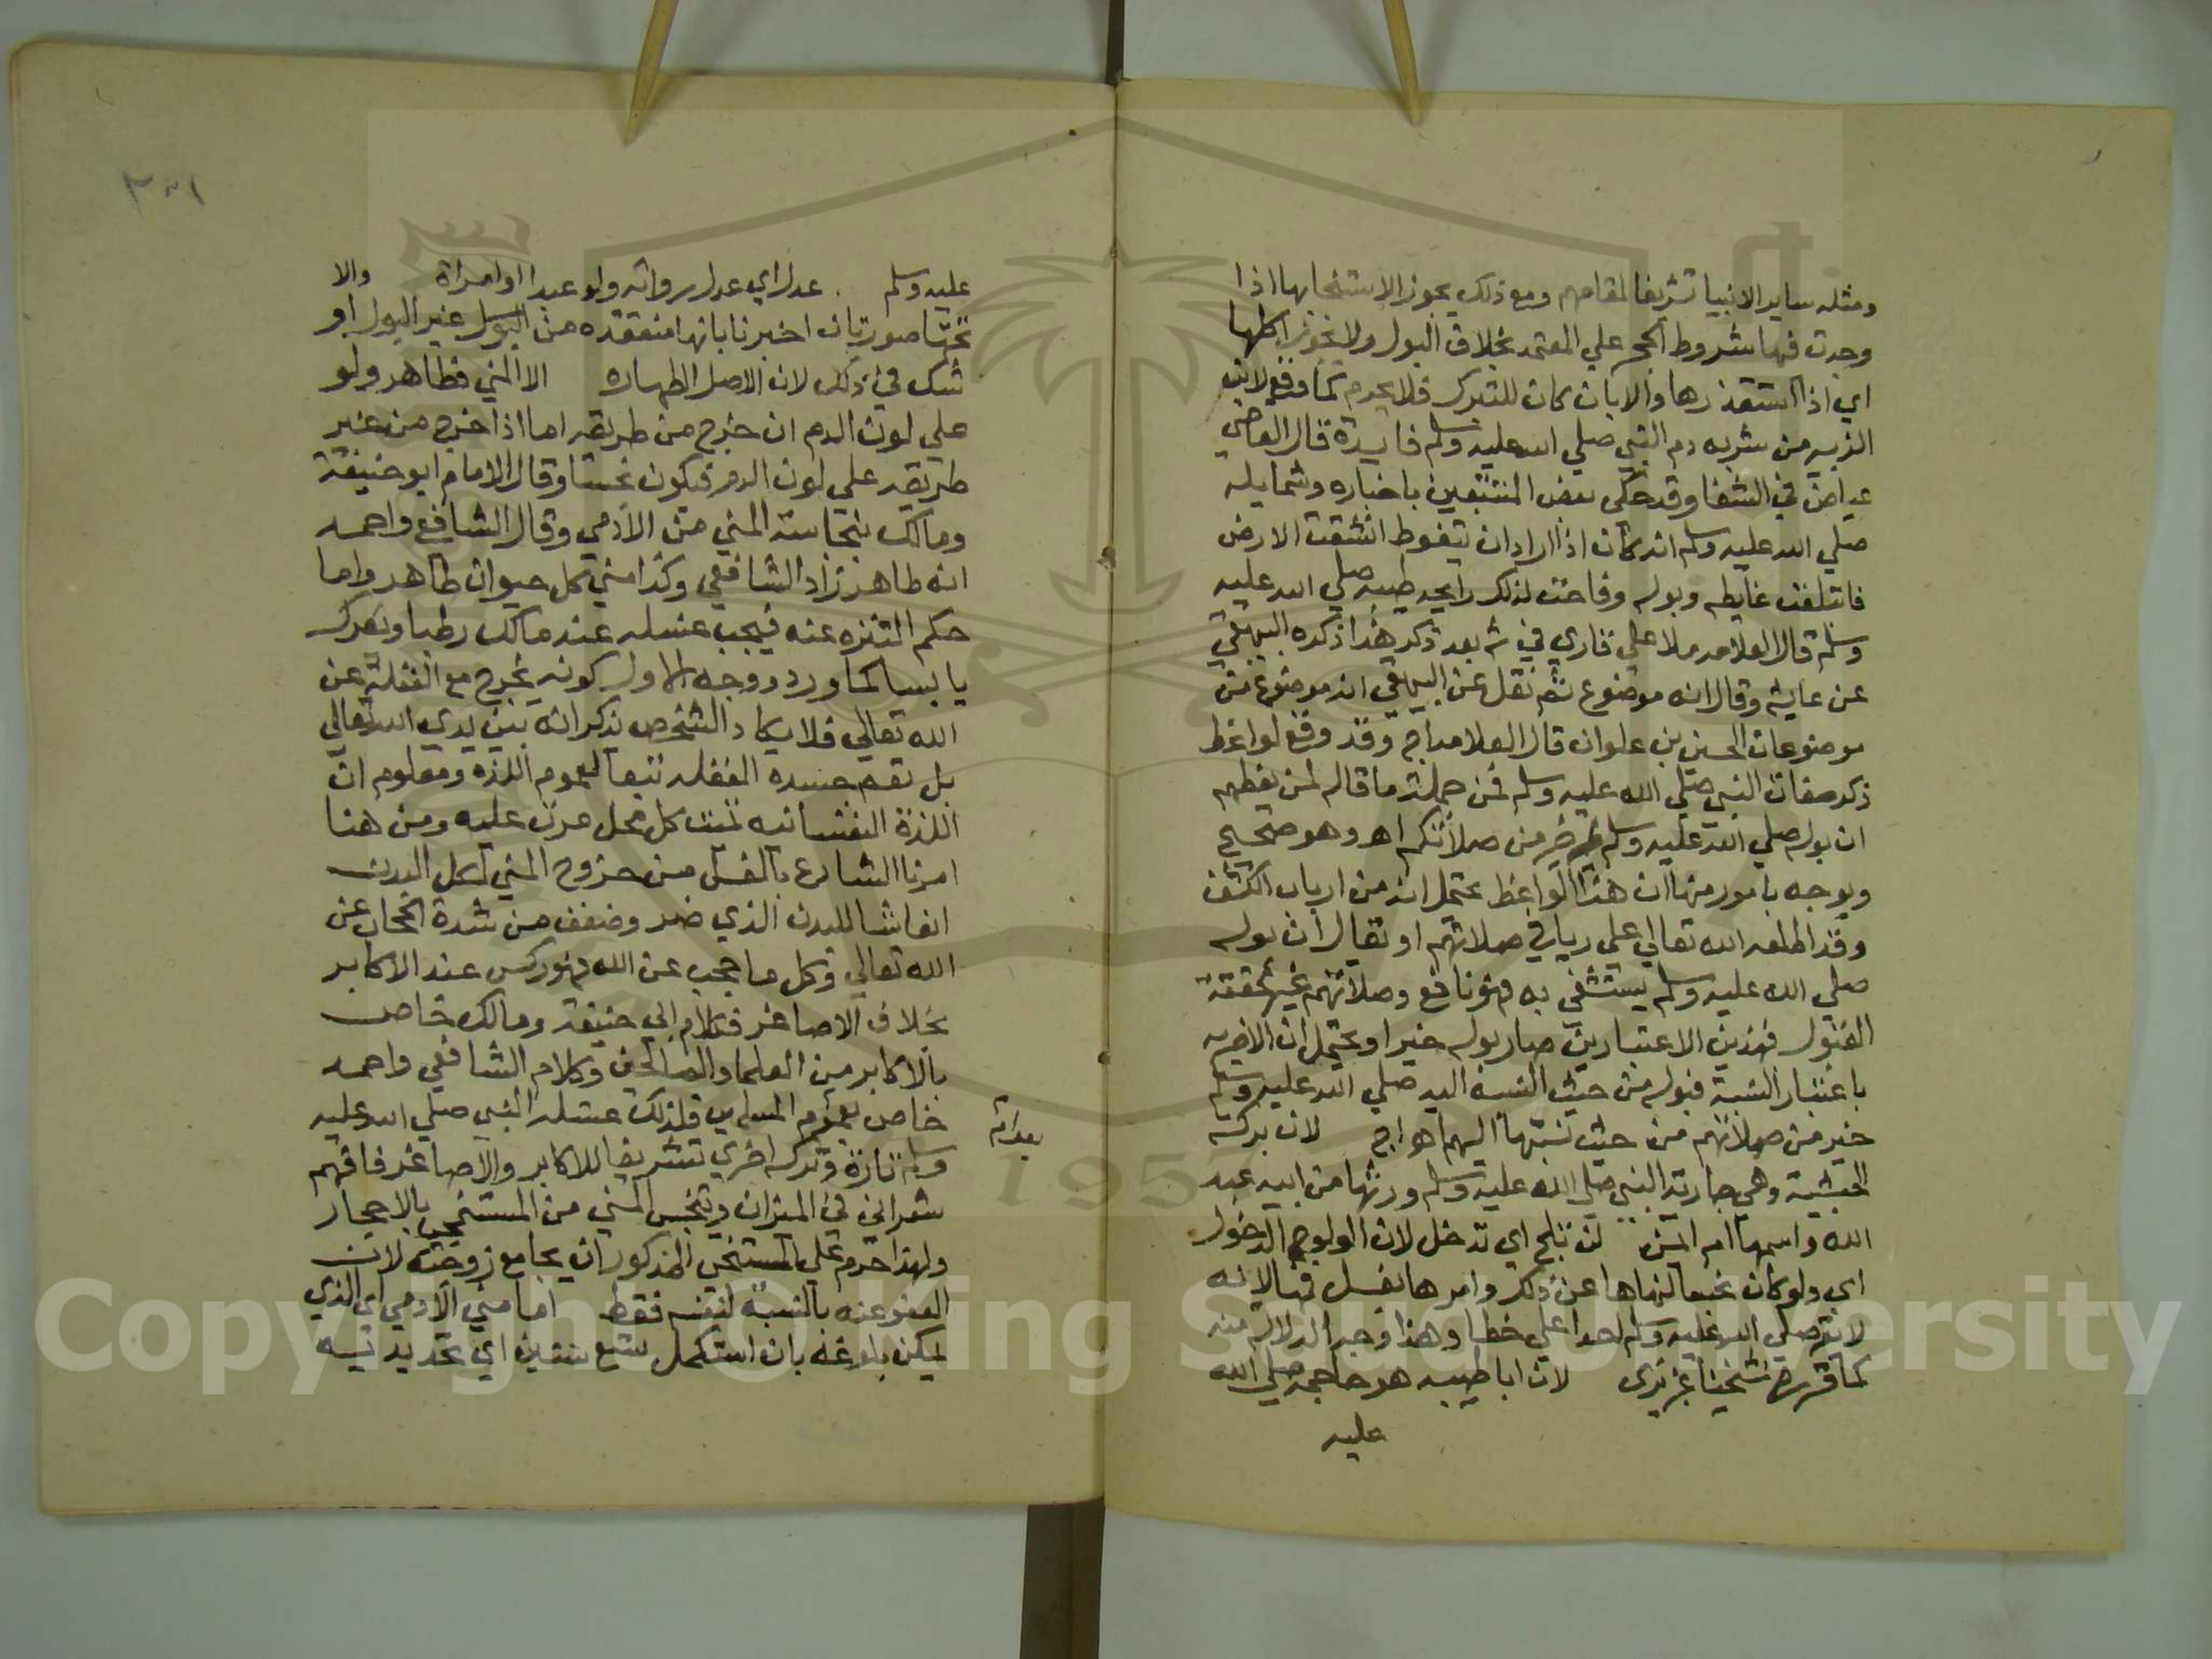 ومثله ساير الانبيا تشريفا لمقامهم ومع ذلك يجوز الاستنجا بها اذا
وجدت فيها شروط الحجر علي المعتمد بخلاف البول ولا يجوز اكلها
اي اذا استقذرها والا بان كان للتبرك فلا يحرم كما وقع لابن
الزبير من شربه دم النبي صلي الله عليه وسلم فايدة قال القاضي
عياض في الشفا وقد حكي بعض المتتبعين باخباره وشمايله
صلي الله عليه وسلم انه كان اذا اراد ان يتغوط انشقت الارض
فابتلعت غايطه وبوله وفاحت لذلك رايحه طيبه صلي الله عليه
وسلم قال العلامه ملا علي قاري في ش بعد ذكر هذا ذكره البيهقي
عن عايشه وقال انه موضوع ثم نقل عن البيهقي انه موضوع من
موضوعات الحسين بن علوان قال العلامه اج وقد وقع لواعظ
ذكر صفات النبي صلي الله عليه وسلم فمن جملة ما قاله لمن يعظهم
ان بوله صلي الله عليه وسلم خير من صلاتكم اهـ وهو صحيح
ويوجه بامور منها ان هذا الواعظ يحتمل انه من ارباب الكشف
وقد اطلعه الله تعالي علي ريا في صلاتهم او يقال ان بوله
صلي الله عليه وسلم يستشفي به فهو نافع وصلاتهم غير محققة
القبول فبهذين الاعتبارين صار بوله خيرا ويحتمل ان الاخيريه
باعتبار النسبة فبوله من حيث النسبة اليه صلي الله عليه وسلم
خير من صلاتهم من حيث نسبتها اليهم اهـ اج لان بركة
الحبشية وهي جارية النبي صلي الله عليه وسلم ورثها من ابيه عبد
الله واسمها ام ايمن لن تلج اي تدخل لان الولوج الدخول
اي ولو كان نجسا لنهاها عن ذلك وامرها بغسل فمها لانه
لا يقر صلي الله عليه وسلم احدا علي خطا وهذا وجه الدلاله منه
كما قرره شيخنا عزيزي لان ابا طيبه هو حاجمه صلي الله
عليه
عليه وسلم عدل اي عدل رواته ولو عبدا او امراة والا
تحتها صورتان اخبرنا بانها منعقده من البول غير البول او
شك في ذلك لان الاصل الطهاره الا المني فطاهر ولو
علي لون الدم ان خرج من طريقه اما اذا خرج من غير
طريقه علي لون الدم فيكون نجسا وقال الامام ابو حنيفة
ومالك بنجاسة المني من الآدمي وقال الشافعي واحمد
انه طاهر زاد الشافعي وكذا مني كل حيوان طاهر واما
حكم التنزه عنه فيجب غسله عند مالك رطبا ويفرك
يابسا كما ورد ووجه الاول كونه يخرج مع الغفلة عن
الله تعالي فلا يكاد الشخص يذكر انه بين يدي الله تعالي
بل تعم جسده الغفله تبعا لعموم اللذة ومعلوم ان
اللذة النفسانيه تميت كل محل مرت عليه ومن هنا
امرنا الشارع بالغسل من خروج المني لكل البدن
انعاشا للبدن الذي ضمر وضعف من شدة الحجاب عن
الله تعالي وكل ما حجب عن الله فهو ركس عند الاكابر
بخلاف الاصاغر فكلام ابي حنيفة ومالك خاص
بالاكابر من العلما والصالحين وكلام الشافعي واحمد
خاص بعموم المسلمين فلذلك غسله النبي صلي الله عليه
وسلم تارة وتركه اخري تشريفا للاكابر والاصاغر فافهم
شعراني في الميزان وينجس المني من المستنجي بالاحجار
ولهذا حرم علي المستنجي المذكور ان يجامع زوجته لان
العفو عنه بالنسبة لنفسه فقط اما مني الآدمي اي الذي
يمكن بلوغه بان استكمل تسع سنين اي تحديديه